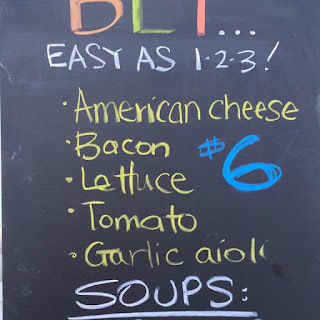 BLT...
EASY AS 1·2·3!
·American cheese
·Bacon
·Lettuce $6
·Tomato
·Garlic aioli
SOUPS: